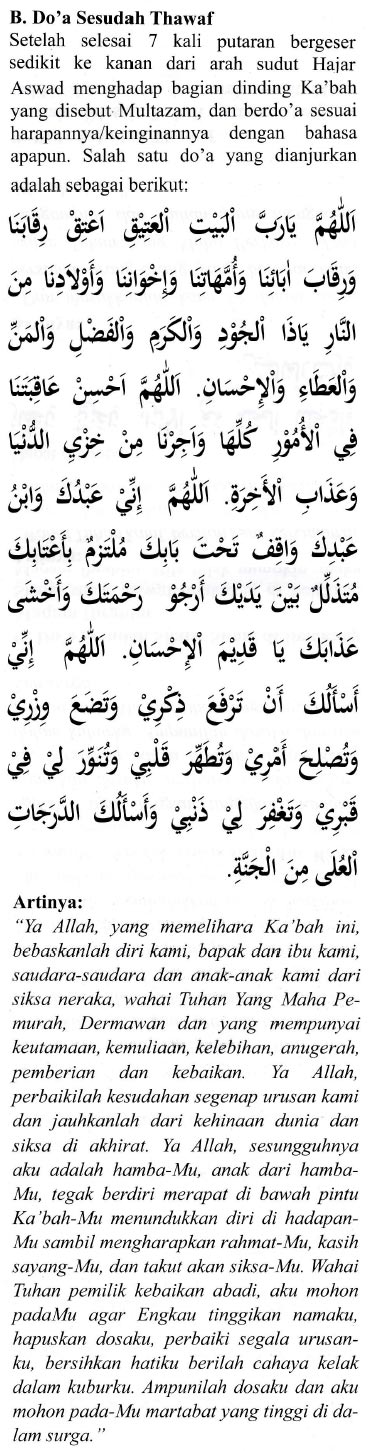 B. Do’a Sesudah Thawaf
Setelah selesai 7 kali putaran bergeser
sedikit ke kanan dari arah sudut Hajar
Aswad menghadap bagian dinding Ka’bah
yang disebut Multazam, dan berdo’a sesuai
harapannya/keinginannya dengan bahasa
apapun. Salah satu do’a yang dianjurkan
adalah sebagai berikut:
اَللّٰهُمَّ يَارَبَّ الْبَيْتِ الْعَتِيْقِ اَعْتِقْ رِقَابَنَا
وَرِقَابَ اٰبَائِنَا وَأُمَّهَاتِنَا وَإِخْوَانِنَا وَأَوْلَادِنَا مِنَ
النَّارِ يَاذَا الْجُوْدِ وَالْكَرَمِ وَالْفَضْلِ وَالْمَنِّ
وَالْعَطَاءِ وَالْإِحْسَانِ. اَللّٰهُمَّ اَحْسِنْ عَاقِبَتَنَا
فِي الْأُمُوْرِ كُلِّهَا وَاَجِرْنَا مِنْ خِزْيِ الدُّنْيَا
وَعَذَابِ الْأَخِرَةِ. اَللّٰهُمَّ إِنِّيْ عَبْدُكَ وَابْنُ
عَبْدِكَ وَاقِفٌ تَحْتَ بَابِكَ مُلْتَزِمٌ بِأَعْتَابِكَ
مُتَذَلِّلٌ بَيْنَ يَدَيْكَ أَرْجُوْ رَحْمَتَكَ وَأَخْشَى
عَذَابَكَ يَا قَدِيْمَ الْإِحْسَانِ. اَللّٰهُمَّ إِنِّيْ
أَسْأَلُكَ أَنْ تَرْفَعَ ذِكْرِيْ وَتَضَعَ وِزْرِيْ
وَتُصْلِحَ أَمْرِيْ وَتُطَهِّرَ قَلْبِيْ وَتُنَوِّرَ لِيْ فِيْ
قَبْرِيْ وَتَغْفِرَ لِيْ ذَنْبِيْ وَأَسْأَلُكَ الدَّرَجَاتِ
الْعُلَى مِنَ الْجَنَّةِ.
Artinya:
“Ya Allah, yang memelihara Ka’bah ini,
bebaskanlah diri kami, bapak dan ibu kami,
saudara-saudara dan anak-anak kami dari
siksa neraka, wahai Tuhan Yang Maha Pe-
murah, Dermawan dan yang mempunyai
keutamaan, kemuliaan, kelebihan, anugerah,
pemberian dan kebaikan. Ya Allah,
perbaikilah kesudahan segenap urusan kami
dan jauhkanlah dari kehinaan dunia dan
siksa di akhirat. Ya Allah, sesungguhnya
aku adalah hamba-Mu, anak dari hamba-
Mu, tegak berdiri merapat di bawah pintu
Ka’bah-Mu menundukkan diri di hadapan-
Mu sambil mengharapkan rahmat-Mu, kasih
sayang-Mu, dan takut akan siksa-Mu. Wahai
Tuhan pemilik kebaikan abadi, aku mohon
padaMu agar Engkau tinggikan namaku,
hapuskan dosaku, perbaiki segala urusan-
ku, bersihkan hatiku berilah cahaya kelak
dalam kuburku. Ampunilah dosaku dan aku
mohon pada-Mu martabat yang tinggi di da-
lam surga.”